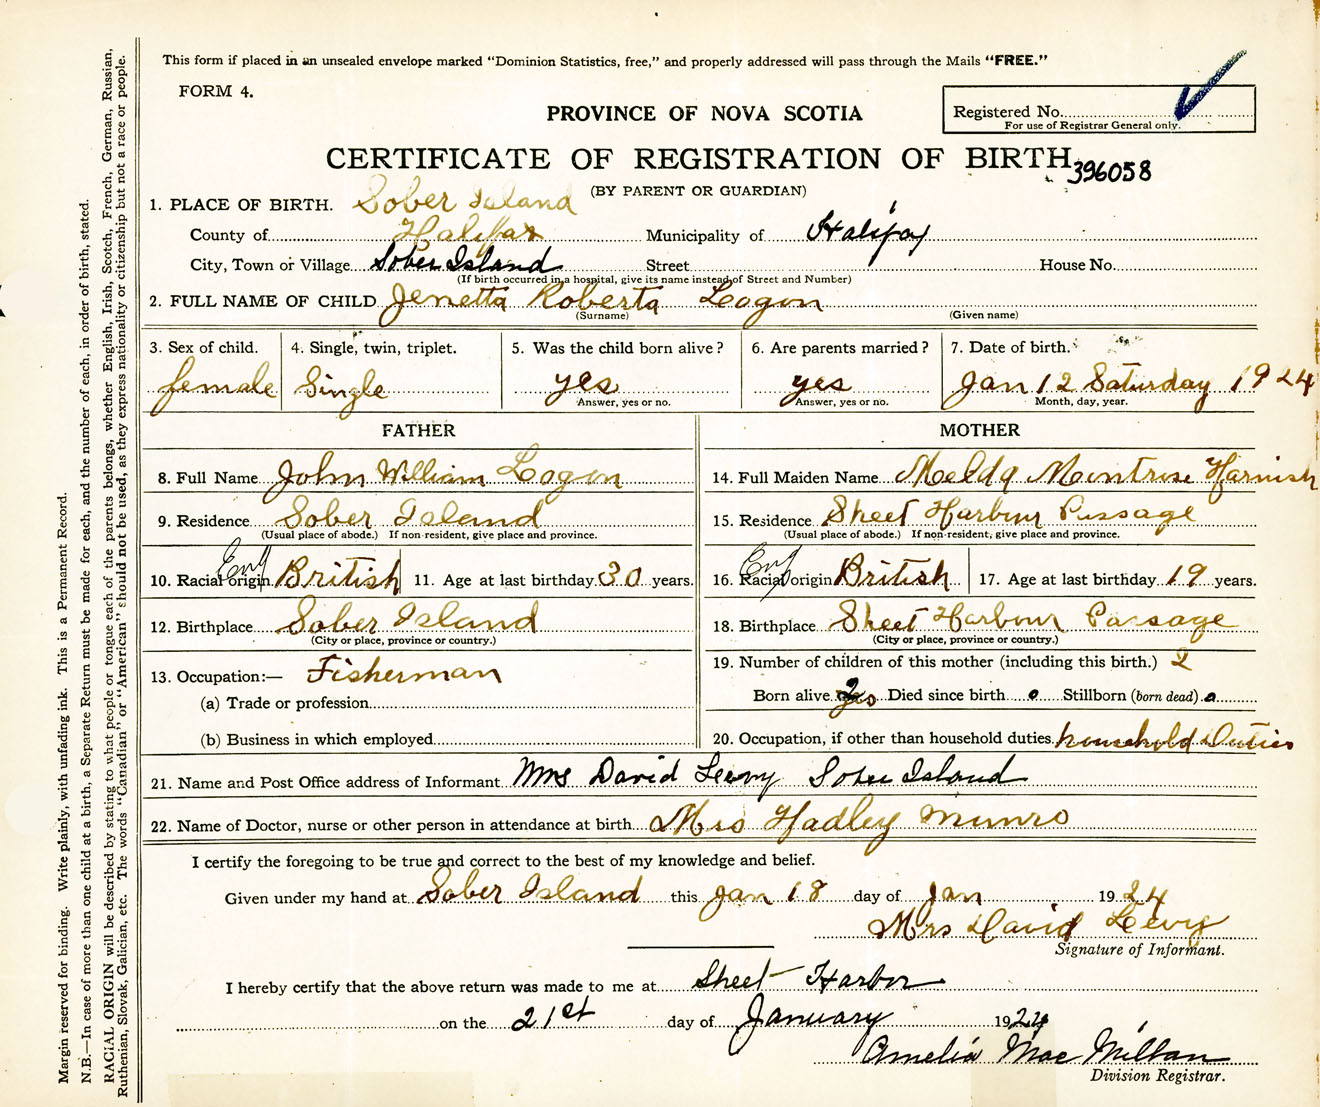 This form if placed in an unsealed envelope marked "Dominion Statistics, free," and properly addressed will pass through the Mails "FREE."
FORM 4.
PROVINCE OF NOVA SCOTIA
Registered No.
For use of Registrar General only.
CERTIFICATE OF REGISTRATION OF BIRTH 396058
(BY PARENT OR GUARDIAN)
1. PLACE OF BIRTH. Sober Island
County of Halifax Municipality of Halifax
City, Town or Village Sober Island Street House No.
(If birth occurred in a hospital, give its name instead of Street and Number)
2. FULL NAME OF CHILD Jenetta Roberta Logon
(Surname) (Given name)
3. Sex of child. 4. Single, twin, triplet. 5. Was the child born alive? 6. Are parents married? 7. Date of birth.
female Single yes yes Jan 12 Saturday 1924
Answer, yes or no. Answer, yes or no. Month, day, year.
FATHER
8. Full Name John William Logon
9. Residence Sober Island
(Usual place of abode.) If non-resident, give place and province.
Eng
10. Racial origin British 11. Age at last birthday 30 years.
12. Birthplace Sober Island
(City or place, province or country.)
13. Occupation:— Fisherman
(a) Trade or profession
(b) Business in which employed
MOTHER
14. Full Maiden Name Melda Montrose Harnish
15. Residence Sheet Harbour Passage
(Usual place of abode.) If non-resident, give place and province.
Eng
16. Racial origin British 17. Age at last birthday 19 years.
18. Birthplace Sheet Harbour Passage
(City or place, province or country.)
19. Number of children of this mother (including this birth.) 2
Born alive 2 Died since birth 0 Stillborn (born dead) 0
20. Occupation, if other than household duties household Duties
21. Name and Post Office address of Informant Mrs David Levy Sober Island
22. Name of Doctor, nurse or other person in attendance at birth Mrs Hadley Munro
I certify the foregoing to be true and correct to the best of my knowledge and belief.
Given under my hand at Sober Island this Jan 18 day of Jan 1924
Mrs David Levy
Signature of Informant.
I hereby certify that the above return was made to me at Sheet Harbor
on the 21st day of January 1924
Amelia Mac Millan
Division Registrar.
Margin reserved for binding. Write plainly, with unfading ink. This is a Permanent Record.
N.B.—In case of more than one child at a birth, a Separate Return must be made for each, and the number of each, in order of birth, stated.
RACIAL ORIGIN will be described by stating to what people or tongue each of the parents belongs, whether English, Irish, Scotch, French, German, Russian,
Ruthenian, Slovak, Galician, etc. The words "Canadian" or "American" should not be used, as they express nationality or citizenship but not a race or people.